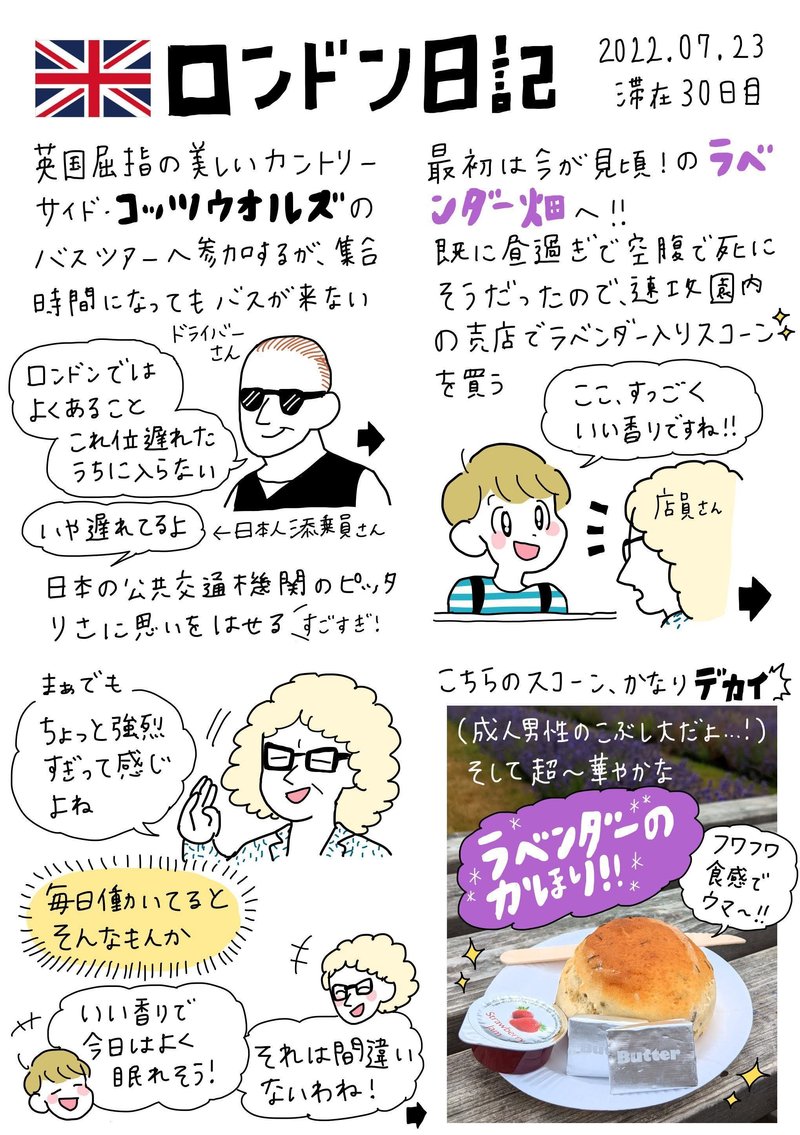 ロンドン日記
2022.07.23
滞在30日目
英国屈指の美しいカントリー
サイド・コッツウオルズの
バスツアーへ参加するが、集合
時間になってもバスが来ない
ドライバー
さん
ロンドンでは
よくあること
これ位遅れた
うちに入らない
いや遅れてるよ
←日本人添乗員さん
日本の公共交通機関のピッタ
リさに思いをはせる
すごすぎ!
最初は今が見頃!のラベ
ンダー畑へ!!
既に昼過ぎで空腹で死に
そうだったので、速攻園内
の売店でラベンダー入りスコーン
を買う
ここ、すっごく
いい香りですね!!
店員さん
まぁでも
ちょっと強烈
すぎって感じ
よね
毎日働いてると
そんなもんか
いい香りで
今日はよく
眠れそう!
それは間違い
ないわね!
こちらのスコーン、かなりデカイ
(成人男性のこぶし大だよ…!)
そして超〜華やかな
ラベンダーの
かほり!!
フワフワ
食感で
ウマ〜!!
Strawberry
Butter